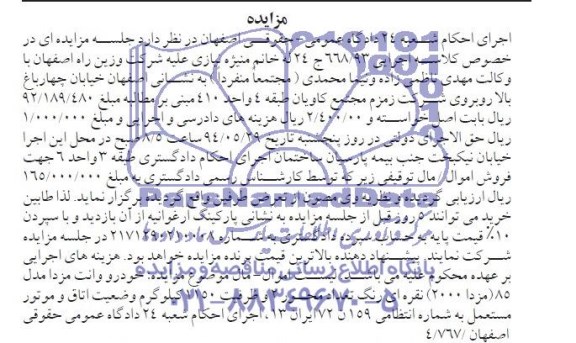 مزایده
اجرای احکام شعبه ۲۴ دادگاه عمومی - حقوقی اصفهان در نظر دارد جلسه مزایده ای در
خصوص کلاسه اجرایی ۶۶۸/۹۳ ج ۲۴ له خانم منیژه نیازی علیه شرکت وزین راه اصفهان با
وکالت مهدی ناظمی زاده ونیما محمدی ( مجتمعا منفردا ) به نشانی اصفهان خیابان چهارباغ
بالا روبروی شرکت زمزم مجتمع کاویان طبقه ۴ واحد ۴۱۰ مبنی بر مطالبه مبلغ ۹۲/۱۸۹/۴۸۰
ریال بابت اصل خواسته و ۲/۴۰۰/۰۰ ریال هزینه های دادرسی و اجرایی و مبلغ ۱/۰۰۰/۰۰۰
ریال حق الاجرای دولتی در روز پنجشنبه تاریخ ۹۴/۰۵/۲۹ ساعت ۸/۵ صبح در محل این اجرا
خیابان نیکبخت جنب بیمه پارسیان ساختمان اجرای احکام دادگستری طبقه ۳ واحد ۶ جهت
فروش اموال / مال توقیفی زیر که توسط کارشناس رسمی دادگستری به مبلغ ۱۶۵/۰۰۰/۰۰۰
ریال ارزیابی گردیده و نظریه وی مصون از تعرض طرفین واقع گردیده برگزار نماید. لذا طالبین
خرید می توانند ۵ روز قبل از جلسه مزایده به نشانی پارکینگ ارغوانیه از آن بازدید و با سپردن
۱۰٪ قیمت پایه به حساب سپرده دادگستری به شماره ۲۱۷۱۲۹۰۲۱۰۰۰۸ در جلسه مزایده
شرکت نمایند. پیشنهاد دهنده بالاترین قیمت برنده مزایده خواهد بود. هزینه های اجرایی
بر عهده محکوم علیه می باشد. لیست اموال - مال موضوع مزایده: خودرو وانت مزدا مدل
۸۵ (مزدا ۲۰۰۰) نقره ای رنگ تعداد محور ۲ و ظرفیت ۱۱۵۰ کیلوگرم وضعیت اتاق و موتور
مستعمل به شماره انتظامی ۱۵۹ ن ۷۲ ایران ۱۳، اجرای احکام شعبه ۲۴ دادگاه عمومی حقوقی
اصفهان /۴/۷۶۷
ParsNamadData
پایگاه اطلاع رسانی مناقصه و مزایده
۰۲۱-۸۸۳۴۹۶۷۰-۵